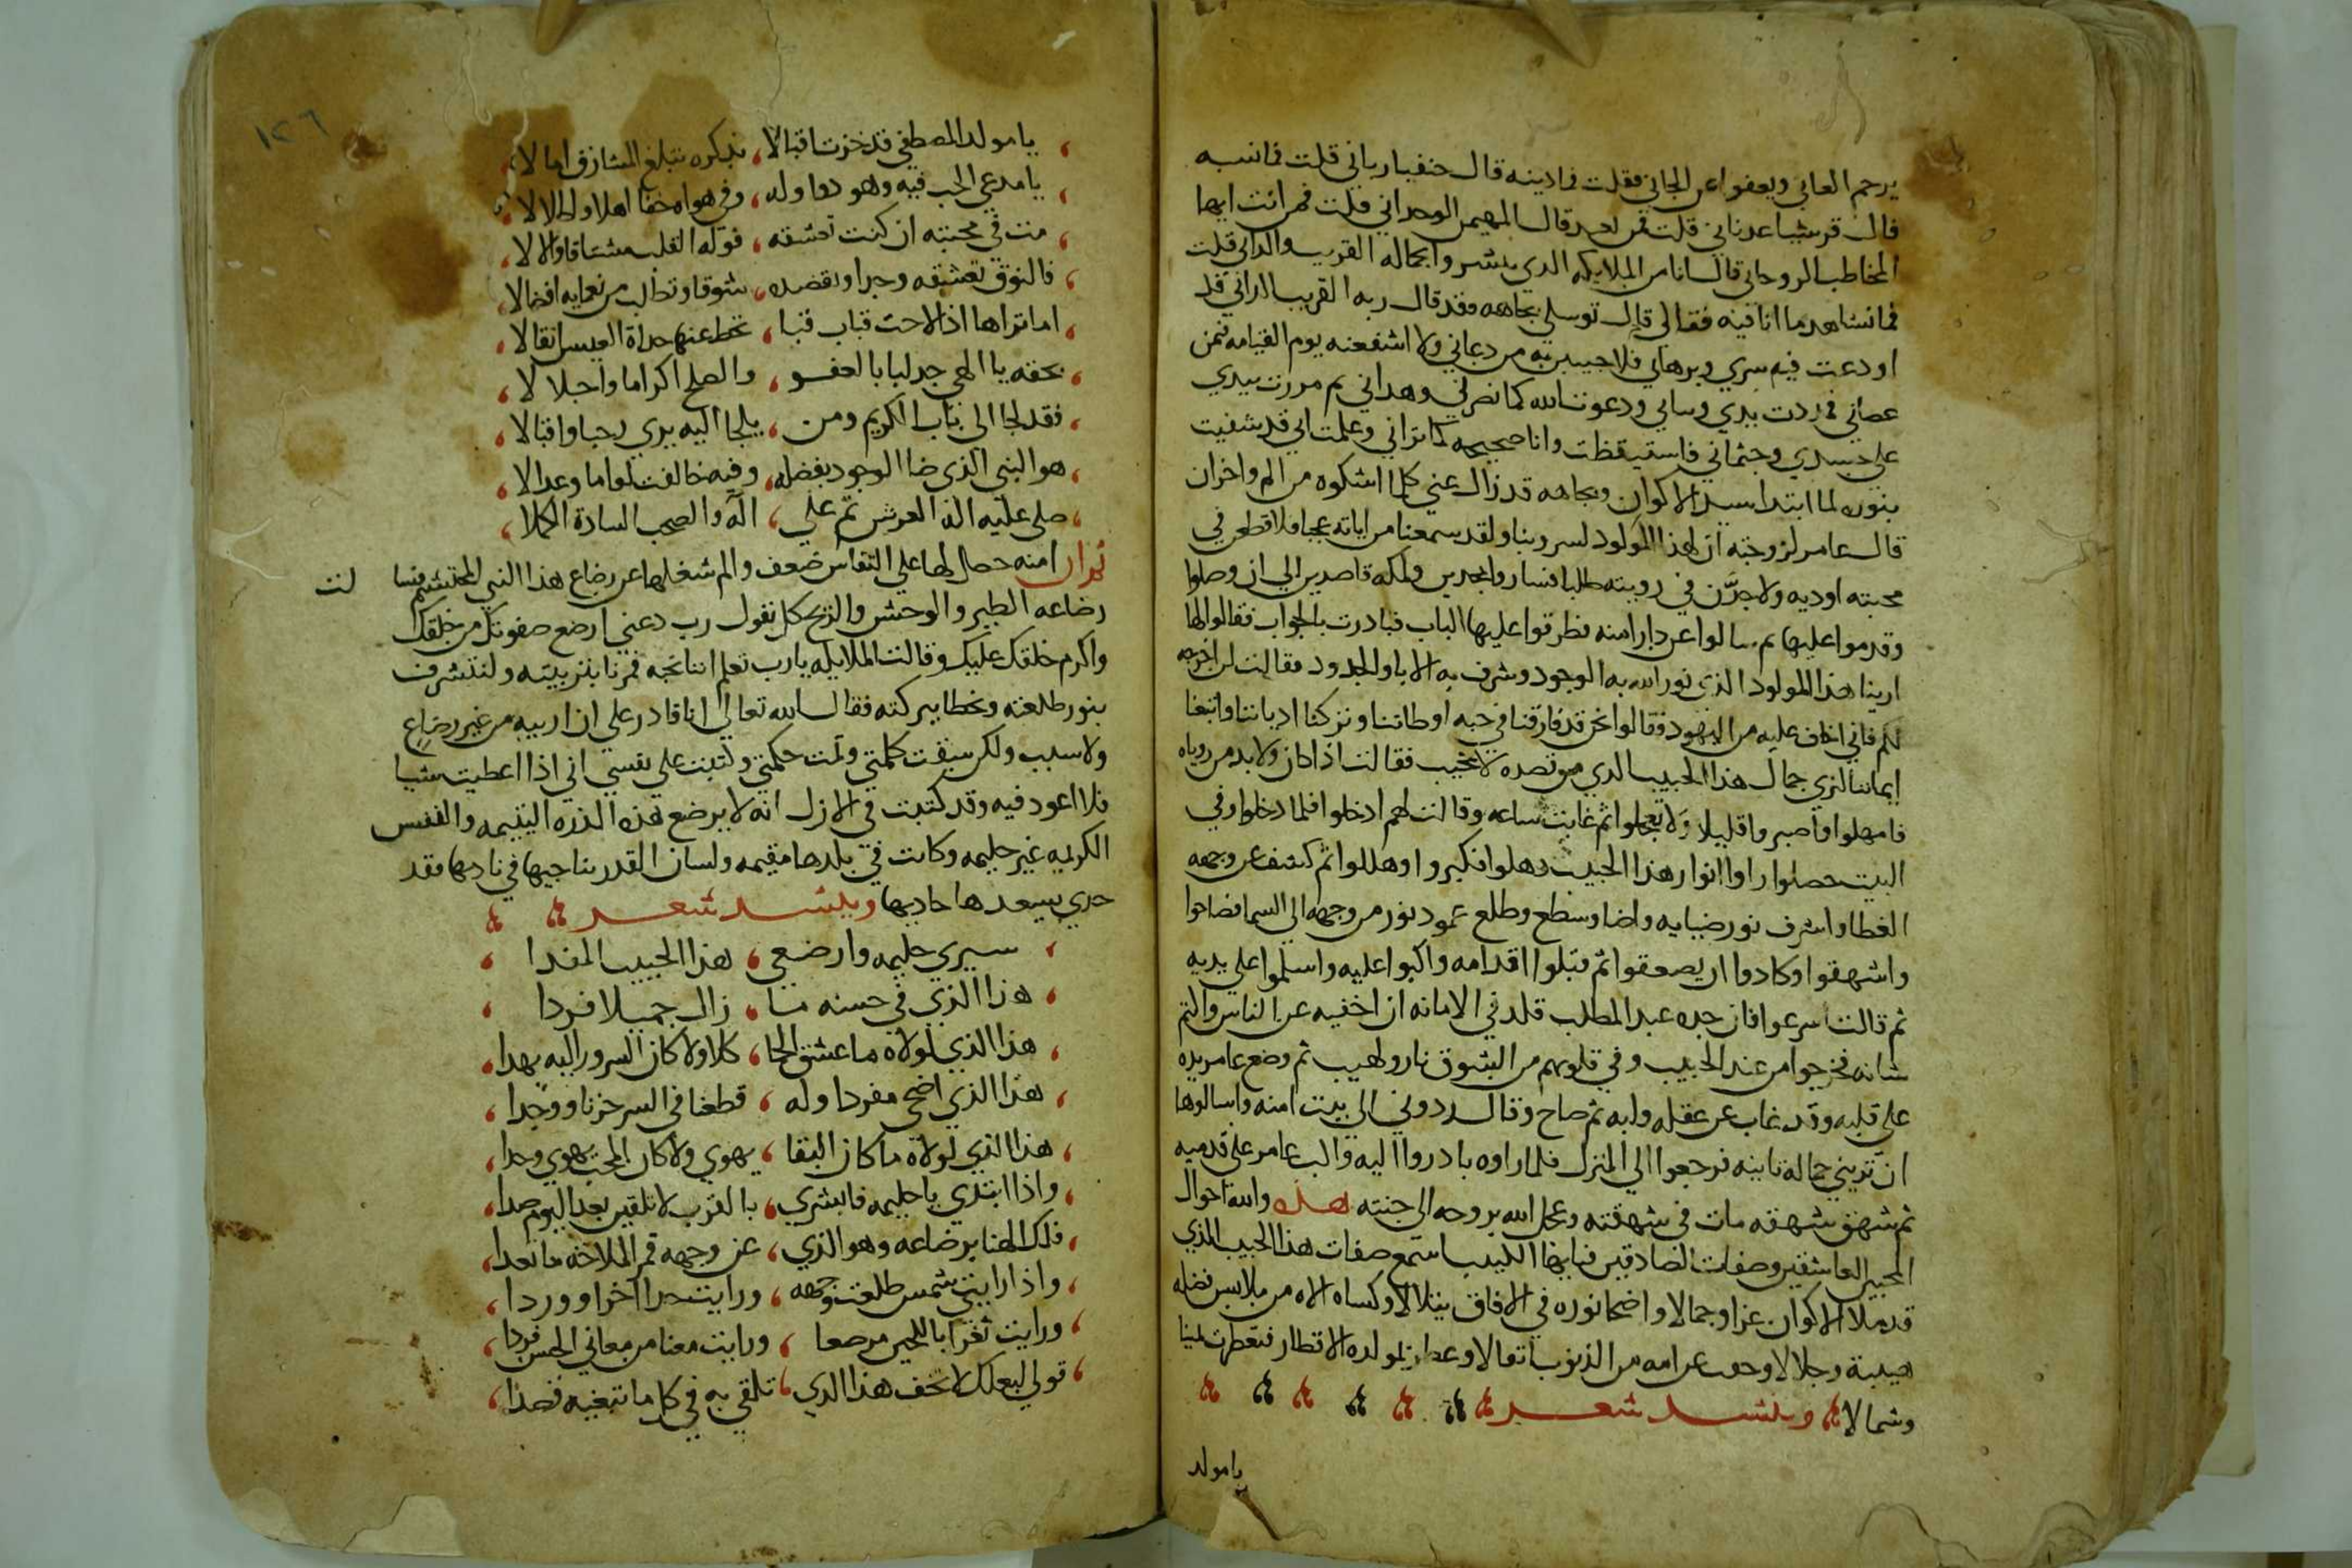 يرحم العاني ويعفوا عن الجاني فقلت فما دينه قال حنفيا رباني قلت فما نسبه
قال قرشيا عدناني قلت فمن يعبد قال المهيمن الوحداني قلت فمن انت ايها
المخاطب الروحاني قال انا من الملايكه الدي بشروا بجماله القريب والداني قلت
فما تشاهد ما انا فيه فقالي قال توسلي بجاهه فقد قال ربه القريب الداني قد
اودعت فيه سري وبرهاني فلاجيبن به من دعاني ولا اشفعنه يوم القيامه فيمن
عصاني فمددت يدي وساني ودعوت الله كما نصرني وهداني ثم مررت بيدي
على جسدي وجثماني فاستيقظت وانا صحيحه كما تراني وعلمت اني قد شفيت
بنوره لما ابتدا سيد الاكوان وبجاهه قد زال عني كل ما اشكوه من الم واحزان
قال عامر لزوجته ان لهذا المولود لسر وبنا ولقد سمعنا من اياته عجبا فلاقطعن في
محبته اوديه ولاجدن في رويته طلبا فساروا مجدين ولمكه قاصدين الي ان وصلوا
وقدموا عليها ثم سالوا عن دار امنه فطرقوا عليها الباب فبادرت بالجواب فقالوا لها
ارينا هذا المولود الذي نور الله به الوجود وشرف به الابا والجدود فقالت لن اخرجه
لكم فاني اخاف عليه من اليهود فقالوا نحن قد فارقنا في حبه اوطاننا وتركنا ادياننا واتبعنا
ايماننا لنري جمال هذا الحبيب الدي من قصده لا يخيب فقالت اذا كان ولا بد من روياه
فامهلوا واصبروا قليلا ولا تعجلوا ثم غابت ساعه وقالت لهم ادخلوا فلما دخلوا وفي
البيت حصلوا راوا انوار هذا الحبيب دهلوا فكبروا وهللوا ثم كشف عن وجهه
الغطا واشرف نور ضيايه واضا وسطع وطلع عمود نور من وجهه الي السما فصاحوا
واشهقوا وكادوا ان يصعقوا ثم قبلوا اقدامه واكبوا عليه واسلموا على يديه
ثم قالت اسرعوا فان جده عبد المطلب قلد في الامانه ان اخفيه عن الناس والتم
شانه فخرجوا من عند الحبيب وفي قلوبهم من الشوق نار ولهيب ثم وضع عامر يده
علي قلبه وقد غاب عن عقله ولبه ثم صاح وقال ردوني الى بيت امنه واسالوها
ان تريني جماله تانيه فرجعوا الي المنزل فلما راوه بادروا اليه والب عامر على قدميه
ثم شهق شهقه مات في شهقته وعجل الله بروحه الى جنته هده والله احوال
المحبين العاشقين وصفات الصادقين فيا ايها اللبيب استمع صفات هذا الحبيب الذي
قد ملا الاكوان عزا وجمالا واضحا نوره في الافاق يتلالا وكساه الاه من ملابس فضله
هيبة وجلالا وحمل عن امه من الذنوب اثقالا وعطر بمولده الاقطار فتعطرت يمينا
وشمالا وينشد شعر
يا مولد
١٢٦
يا مولد المصطفي قد حزت اقبالا ، بذكره تبلغ المشتاق امالا
يا مدعي الحب فيه وهو دوا وله ، وفي هواه جفا اهلا واطلالا
مت في محبته ان كنت تعشقه ، فوله القلب مشتاقا والا لا
فالنوق تعشقه وجدا وتقصده ، شوقا وتطلب من نعمايه افضالا
اما تراها اذا لاحت قباب قبا ، تحط عنها حداة العيس اثقالا
بحقه يا الهي جد لبا بالعفو ، والصلح اكراما واجلالا
فقد لجا الى باب الكريم ومن ، يلجا اليه يري رحبا واقبالا
هو النبي الذي ضا الوجود بفضله ، وفيه خالفت لواما وعدالا
صلى عليه اله العرش ثم على ، اله والصحب السادة الكملا
ثم ان امنه حصل لها على النفاس ضعف والم شغلها عن رضاع هذا النبي المحتشم فسا لت
رضاعه الطير والوحش والريح كل يقول رب دعني ارضع صفوتك من خلقك
واكرم خلقك عليك وقالت الملايكه يارب تعلم اننا نحبه فمرنا بتربيته ولنتشرف
بنور طلعته ونحظا ببركته فقال الله تعالى انا قادر على ان اربيه من غير رضاع
ولا سبب ولكن سبقت كلمتي وتمت حكمتي وكتبت على نفسي اني اذا اعطيت شيا
فلا اعود فيه وقد كتبت في الازل انه لا يرضع هذه الدره اليتيمه والنفس
الكريمه غير حليمه وكانت في بلدها مقيمه ولسان القدر يناجيها في ناديها فقد
حدي بسعدها حاديها وينشد شعر
سيري حليمه وارضعي ، هذا الحبيب المفدا
هذا الذي في حسنه ما ، زال جميلا فردا
هذا الذي لولاه ما عشق الحما ، كلا ولا كان السرور اليه يهدا
هذا الذي اضحى مفردا وله ، قطعنا في السر حزنا ووجدا
هذا الذي لولاه ما كان البقا ، يهوي ولا كان المحب يهوي وجدا
واذا ابتدي يا حليمه فابشري ، بالقرب لا تلقين بعد اليوم صدا
فلك الهنا برضاعه وهو الذي ، عن وجهه قمر الملاحه ما تعدا
واذا رايتي شمس طلعت وجهه ، ورايت خدا احمرا ووردا
ورايت ثغرا باللجين مرصعا ، ورايت معنا من معاني الحسن فردا
قولي لبعلك لا تخف هذا الدي ، تلقي به في كل ما تبغيه قصدا